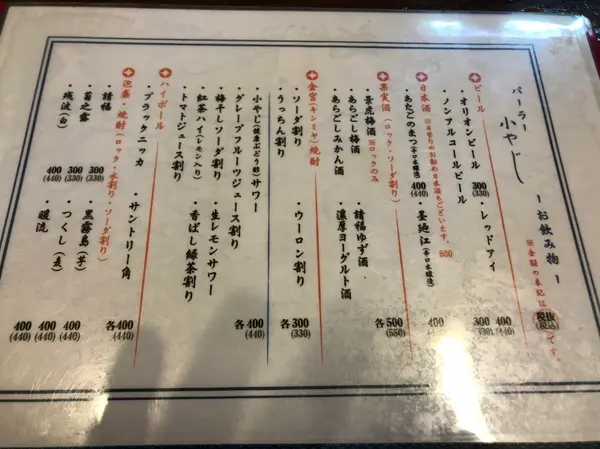 パーラー
小やじ
ーお飲み物ー
※金額の表記は税抜(税込)です。
ビール
・オリオンビール 300 (330)
・レッドアイ 400 (440)
・ノンアルコールビール 300 (330)
日本酒 ※日替りのお勧め日本酒もございます。500
・あたごのまつ(辛口本醸造) 400 (440)
・墨廼江(辛口本醸造) 400 (440)
果実酒(ロック・ソーダ割り) 各500 (550)
・景虎梅酒 ※ロックのみ
・請福ゆず酒
・あらごし梅酒
・濃厚ヨーグルト酒
・あらごしみかん酒
金宮(キンミヤ)焼酎 各300 (330)
・ソーダ割り
・ウーロン割り
・うっちん割り
・小やじ(健康ぶどう酢)サワー 各400 (440)
・グレープフルーツジュース割り
・梅干しソーダ割り
・生レモンサワー
・紅茶ハイ(レモン入り)
・香ばし緑茶割り
・トマトジュース割り
ハイボール 各400 (440)
・ブラックニッカ
・サントリー角
泡盛・焼酎(ロック・水割り・ソーダ割り)
・請福 300 (330)
・黒霧島(芋) 400 (440)
・菊之露 300 (330)
・つくし(麦) 400 (440)
・残波(白) 400 (440)
・暖流 400 (440)